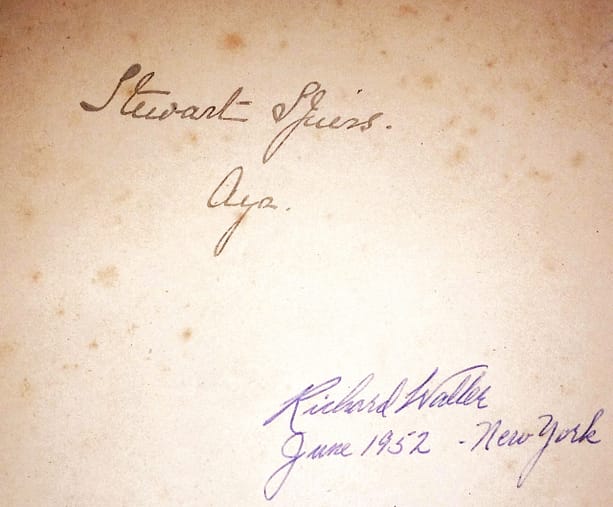 Stewart Spiers.
Ayr.
Richard Waller
June 1952 - New York